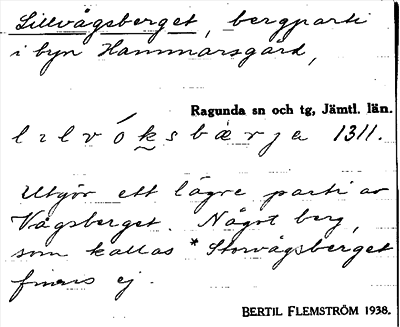 Lillvågsberget, bergparti
i byn Hammarsgård,
Ragunda sn och tg, Jämtl. län.
lılvóksbærja 1311.
Utgör ett lägre parti av
Vågsberget. Något berg,
som kallas *Storvågsberget
finns ej.
BERTIL FLEMSTRÖM 1938.